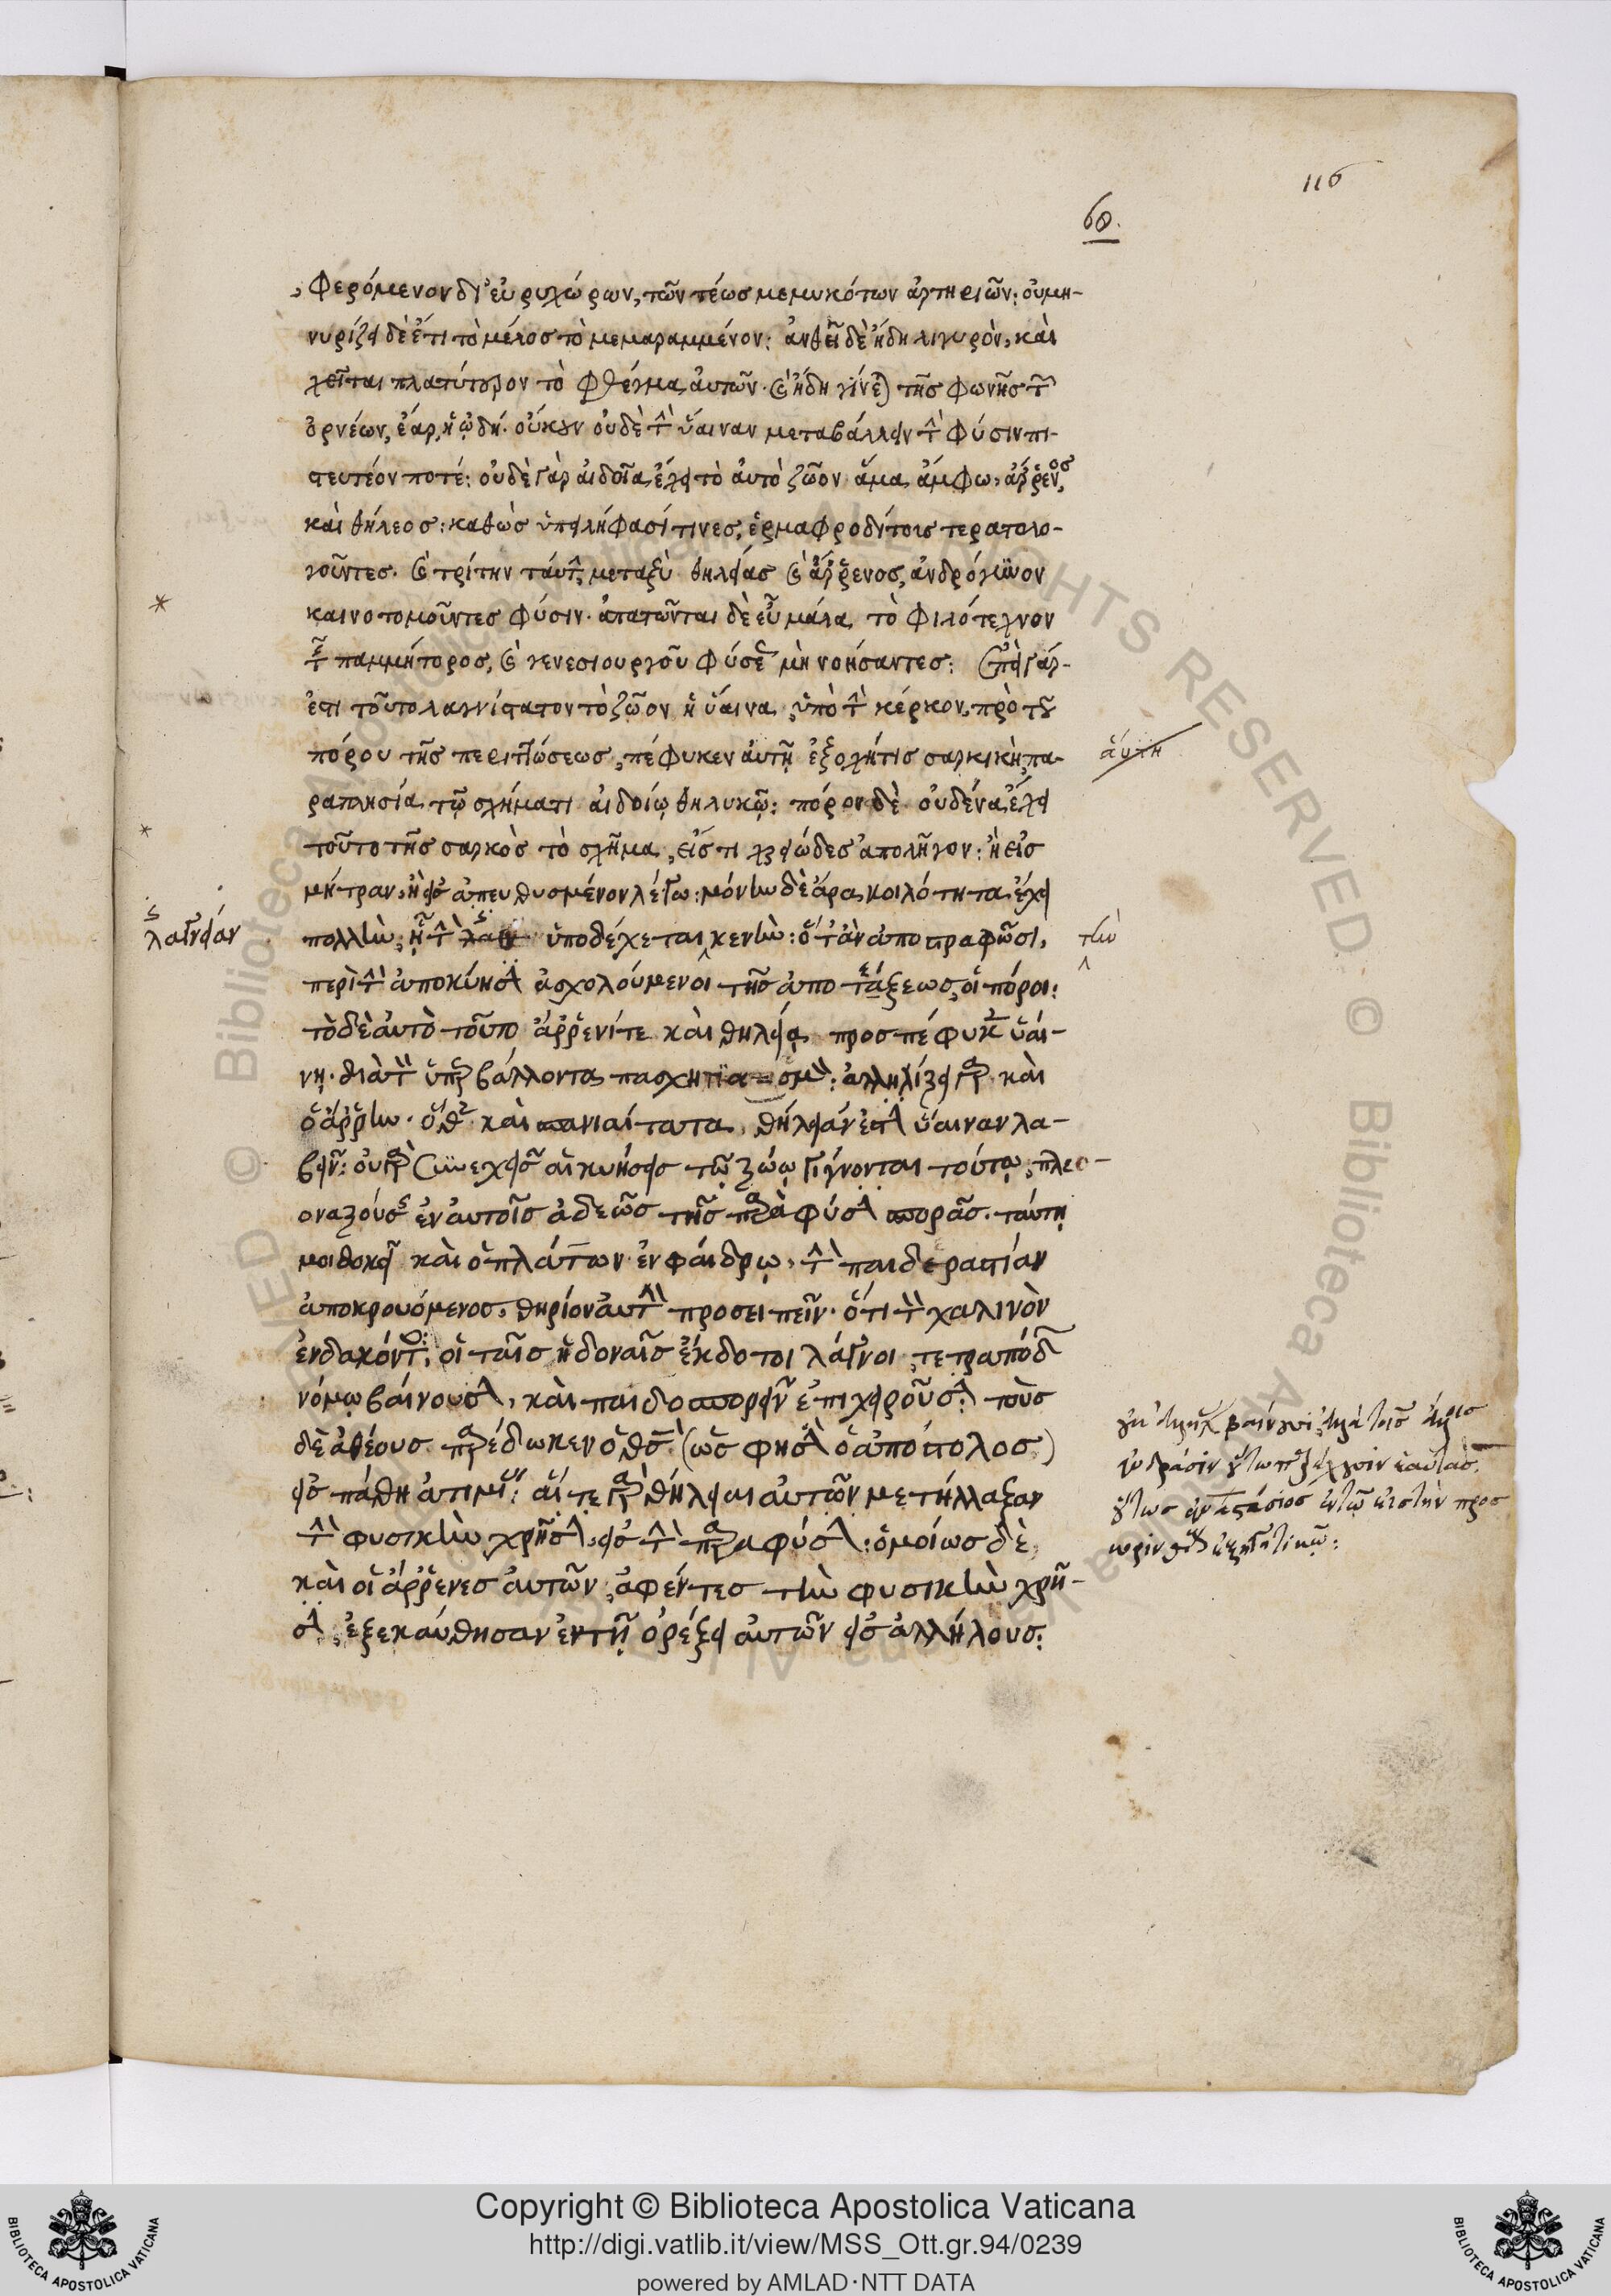 116
60.
φερόμενον δι' εὐρυχώρων, τῶν τέως μεμυκότων ἀρτηριῶν: οὐ μη-
νυρίζει δὲ ἔτι τὸ μέλος τὸ μεμαραμμένον: ἀνθεῖ δὲ ἤδη λιγυρὸν, καὶ
χεῖται πλατύτερον τὸ φθέγμα αὐτῶν. καὶ ἤδη γίνεται τῆς φωνῆς τῶν
ὀρνέων, ἔαρ, ἡ ᾠδή. οὔκουν οὐδὲ τὴν ὕαιναν μεταβάλλειν τὴν φύσιν πι-
στευτέον ποτέ: οὐδὲ γὰρ αἰδοῖα ἔχει τὸ αὐτὸ ζῶον ἅμα ἄμφω, ἄῤῥενος,
καὶ θήλεος: καθὼς ὑπειλήφασί τινες, ἑρμαφροδίτους τερατολο-
γοῦντες. καὶ τρίτην ταύτην μεταξὺ θηλείας καὶ ἄῤῥενος, ἀνδρόγυνον
καινοτομοῦντες φύσιν. ἀπατῶνται δὲ εὖ μάλα, τὸ φιλότεχνον
τῆς παμμήτορος, καὶ γενεσιουργοῦ φύσεως μὴ νοήσαντες: ἐπεὶ γάρ
ἐστι τοῦτο λαγνίστατον τὸ ζῶον ἡ ὕαινα, ὑπὸ τὴν κέρκον, πρὸ τοῦ
πόρου τῆς περιττώσεως, πέφυκεν αὐτῇ ἐξοχή τις σαρκικὴ, πα-
αὕτη
ραπλησία τῷ σχήματι αἰδοίῳ θηλυκῷ: πόρον δὲ οὐδένα ἔχει
τοῦτο τῆς σαρκὸς τὸ σχῆμα, εἴς τι χρειώδες ἀπολῆγον: ἢ εἰς
μήτραν, ἢ εἰς ἀπευθυσμένον λέγω: μόνην δὲ ἄρα κοιλότητα ἔχει
λαγνείαν
πολλὴν, ᾗ τὴν ὑποδέχεται κενὴν: ὅταν ἀποστραφῶσι,
τὴν
περὶ τὴν ἀποκύησιν ἀσχολούμενοι τῆς ἀποτάξεως, οἱ πόροι:
τὸ δὲ αὐτὸ τοῦτο ἄῤῥενί τε καὶ θηλείᾳ προσπέφυκεν ὑαί-
νῃ. διὰ τὸ ὑπερβάλλοντα πασχητιασμόν: ἀλληλίζει γὰρ καὶ
ὁ ἄῤῥην. ὅθεν καὶ σπανιαίτατα, θήλειάν ἐστιν ὕαιναν λα-
βεῖν: οὐ γὰρ συνεχεῖς αἱ κυήσεις τῷ ζώῳ γίγνονται τούτῳ, πλεο-
οναζούσης ἐν αὐτοῖς ἀδεῶς τῆς παρὰ φύσιν σπορᾶς. ταύτῃ
μοι δοκεῖ καὶ ὁ πλάτων ἐν φαίδρῳ, τὴν παιδεραστίαν
ἀποκρουόμενος, θηρίον αὐτὴν προσειπεῖν. ὅτι τὸν χαλινὸν
ἐνδακόντες, οἱ ταῖς ἡδοναῖς ἔκδοτοι λάγνοι, τετραπόδων
νόμῳ βαίνουσιν, καὶ παιδοσπορεῖν ἐπιχειροῦσιν: τοὺς
δὲ ἀθέους παρέδωκεν ὁ θεὸς (ὥς φησιν ὁ ἀπόστολος)
εἰς πάθη ἀτιμίας: αἵ τε γὰρ θήλειαι αὐτῶν μετήλλαξαν
τὴν φυσικὴν χρῆσιν, εἰς τὴν παρὰ φύσιν: ὁμοίως δὲ,
καὶ οἱ ἄῤῥενες αὐτῶν, ἀφέντες τὴν φυσικὴν χρῆ-
σιν, ἐξεκαύθησαν ἐν τῇ ὀρέξει αὐτῶν εἰς ἀλλήλους:
Copyright © Biblioteca Apostolica Vaticana
http://digi.vatlib.it/view/MSS_Ott.gr.94/0239
powered by AMLAD·NTT DATA
BIBLIOTECA APOSTOLICA VATICANA
BIBLIOTECA APOSTOLICA VATICANA